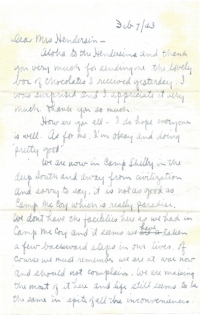 Feb 7/43
Dear Mrs Henderson –
Aloha to the Hendersons and thank
you very much for sending me the lovely
box of chocolates I received yesterday. I
was surprised and I appreciate it very
much. thank you so much.
How are you all – I do hope everyone
is well. As for me, I'm okay and doing
pretty good.
We are now in Camp Shelby in the
deep South and away from civilization
and sorry to say, it is not as good as
Camp McCoy which is really paradise.
We don't have the facilities here as we had in
Camp McCoy and it seems we have taken
a few backward steps in our lives. Of
course we must remember we are at war now
and should not complain. We are making
the most of it here and life still seems to be
the same in spite of all the inconveniences.